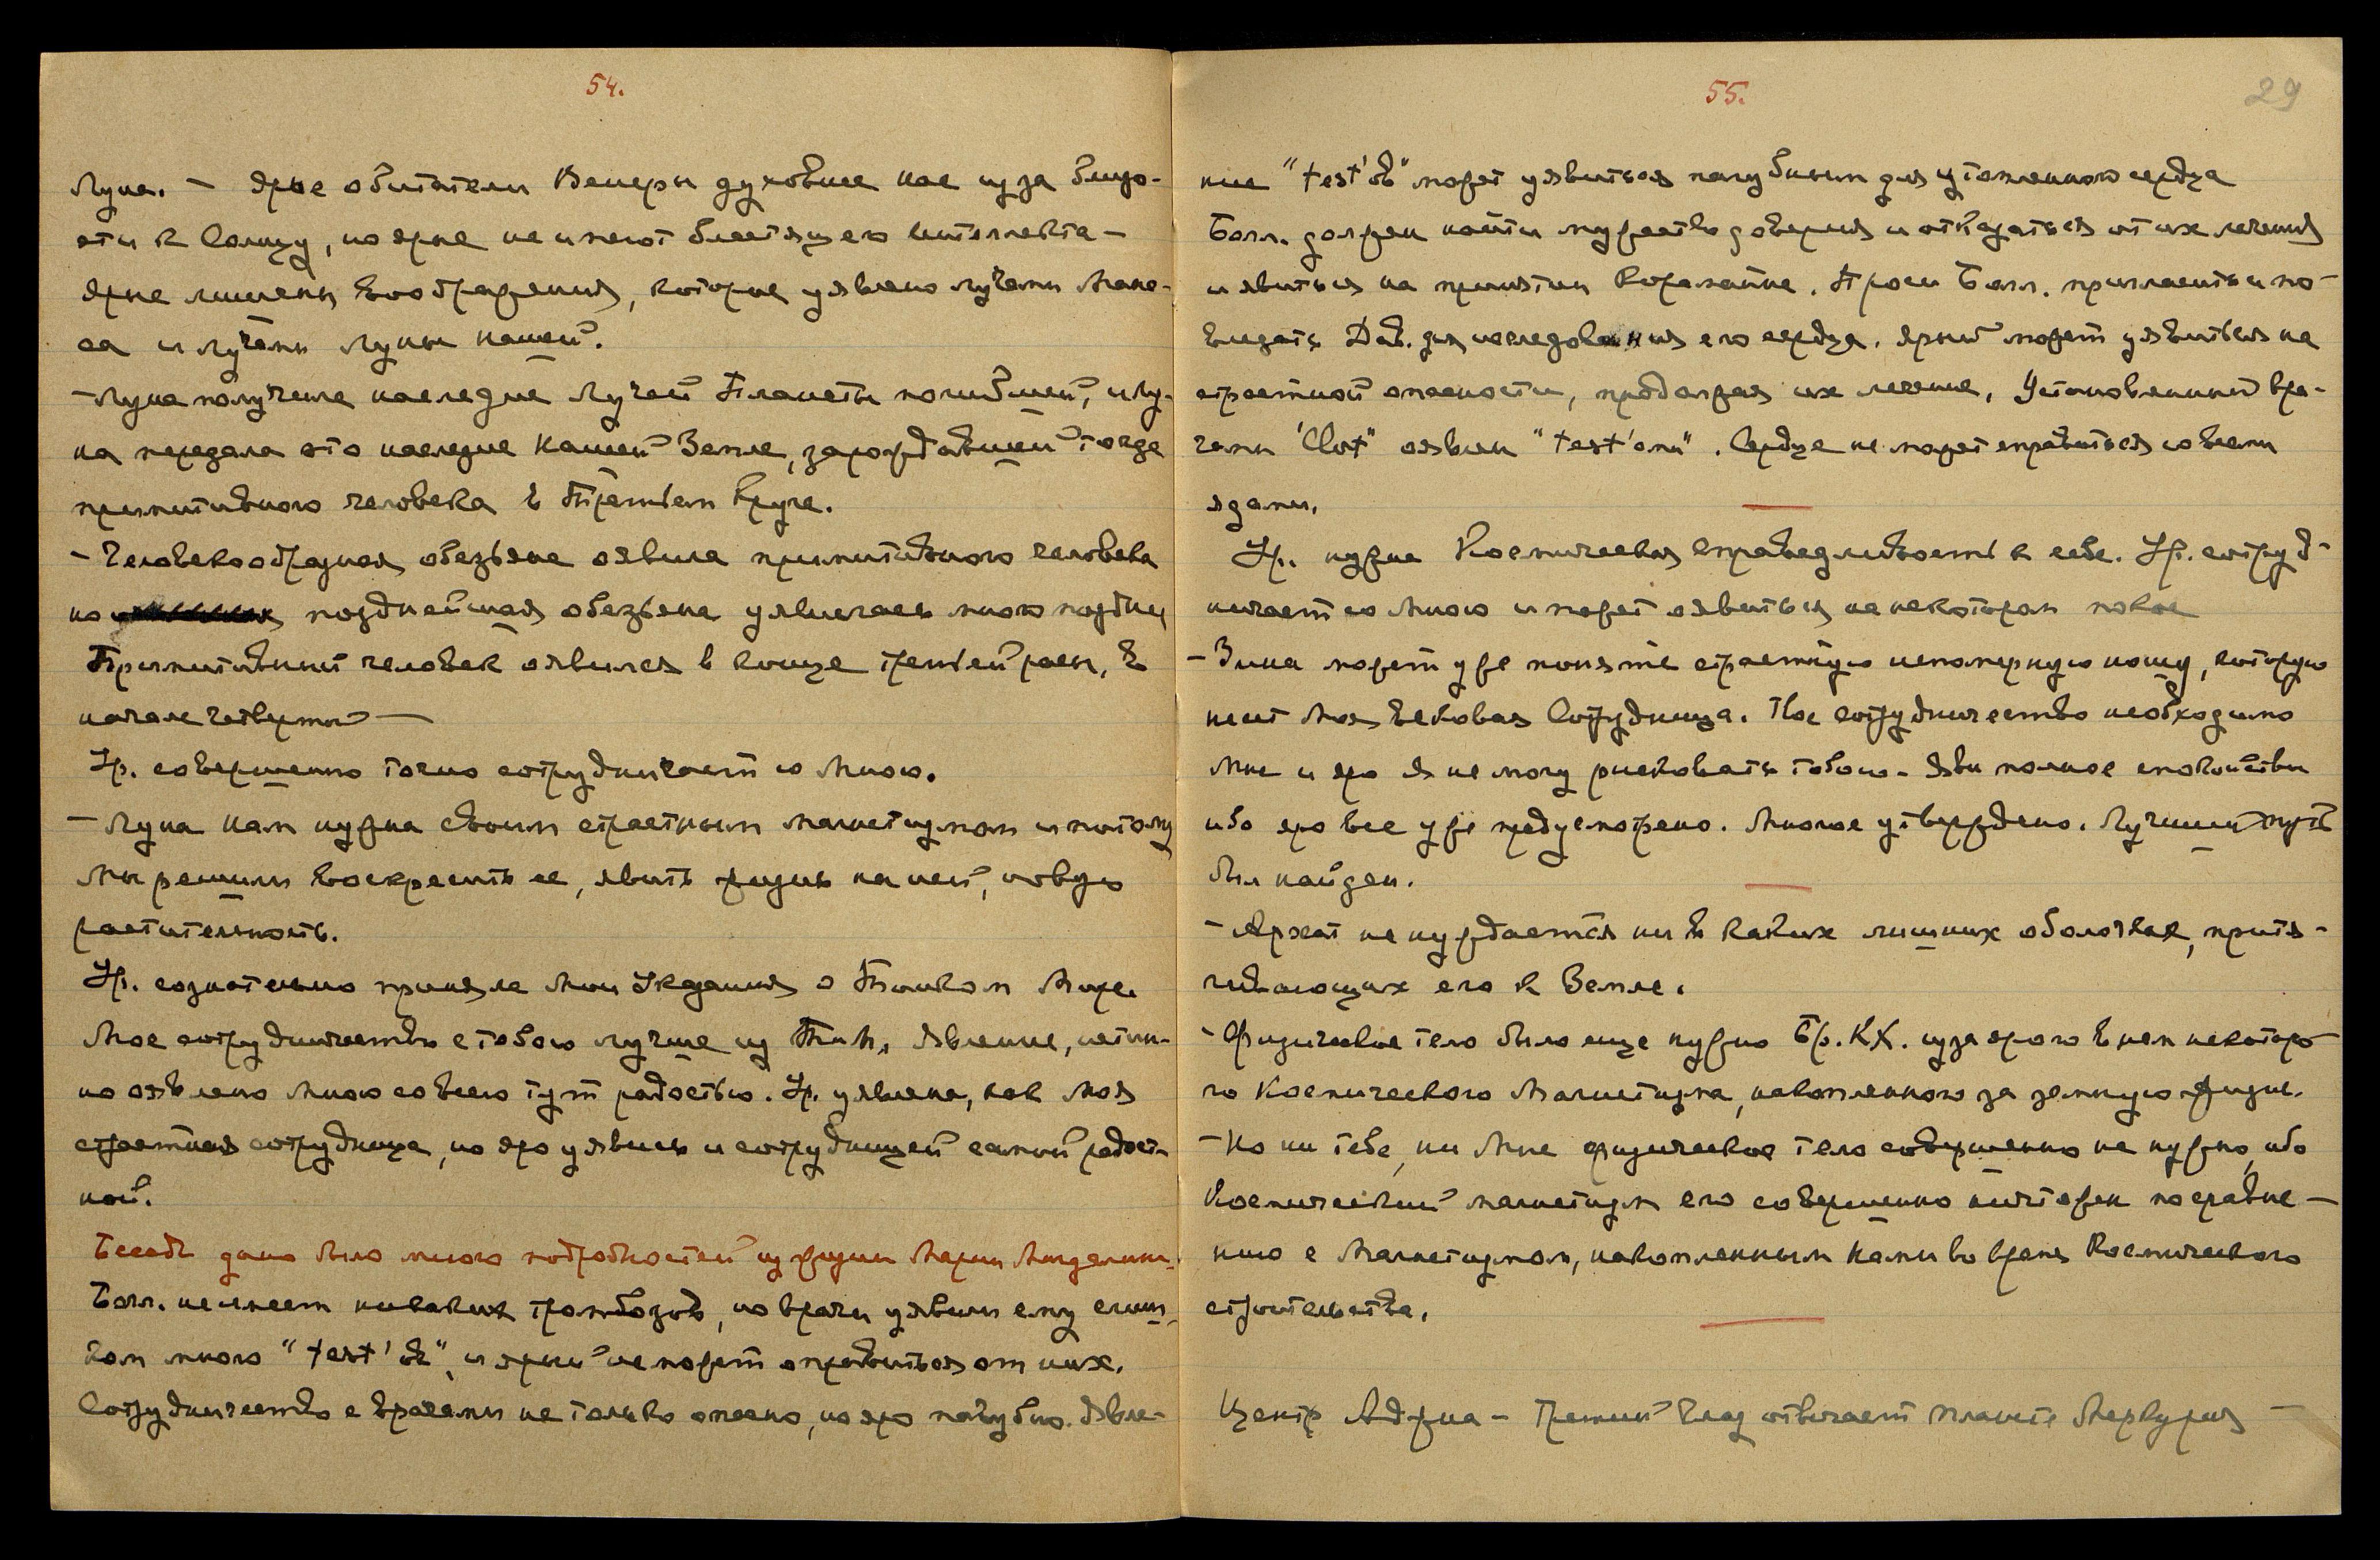 54.
Луна. — Ярые обитатели Венеры духовнее нас из за близо-
сти к Солнцу, но ярые не имеют блестящего интеллекта —
Ярые лишены воображения, которое уявлено лучами
са и лучами Луны нашей.
— Луна получила наследие Лучей Планеты погибшей, и Лу-
на передала это наследие нашей Земле, зарождавшей тогда
примитивного человека в Третьем Круге.
— Человекообразная обезьяна оявила примитивного человека
но позднейшая обезьяна уявилась много позднее
Примитивный человек оявился в конце третьей расы, в
начале четвертой —
Ур. совершенно точно сотрудничает со Мною.
— Луна нам нужна своим страстным магнетизмом и потому
Мы решили воскресить ее, явить жизнь на ней, новую
растительность.
Ур. сознательно приняла Мои Указания о Тонком Мире.
Мое сотрудничество с тобою лучше из Т. М. Явление, истин-
но оявлено Мною со всею тут радостью. Ур. уявлена, как Моя
страстная сотрудница, но яро уявись и сотрудницей самой радост-
ной.
Беседь дано было много подробностей из жизни Марии Магдалины.
Болл. не имеет никаких тромбозов, но врачи уявили ему слиш-
ком много "test'ов", и ярый не может оправиться от них.
Сотрудничество с врачами не только опасно, но яро пагубно. Явле-
55.
29
ние "test'ов" может уявиться пагубным для утомленного сердца
Болл. должен найти мужество доверия и отказаться от их лечения
и явиться на принятии Корамайна. Проси Болл. пригласить и по-
видать Дав. для исследования его сердца. Ярый может уявиться на
страстной опасности, продолжая их лечение. Установленный вра-
чами "Clot" оявлен "test'ами". Сердце не может справиться со всеми
ядами.
Ур. нужна Космическая справедливость к себе. Ур. сотруд-
ничает со Мною и может оявиться на некотором покое
— Зина может уже понять страстную непомерную ношу, которую
несет Моя Вековая Сотрудница. Твое сотрудничество необходимо
Мне и яро Я не могу рисковать тобою. Яви полное спокойствие
ибо яро все уже предусмотрено. Многое утверждено. Лучший путь
был найден.
— Архат не нуждается ни в каких лишних оболочках, притя-
гивающих его к Земле.
— Физическое тело было еще нужно Бр. К.Х. из за ярого в нем некоторо-
го Космического Магнетизма, накопленного за земную жизнь.
— Но ни тебе, ни Мне физическое тело совершенно не нужно, ибо
Космический магнетизм его совершенно ничтожен по сравне-
нию с Магнетизмом, накопленным Нами во время Космического
строительства.
Центр Аджна — Третий Глаз отвечает планете Меркурия —